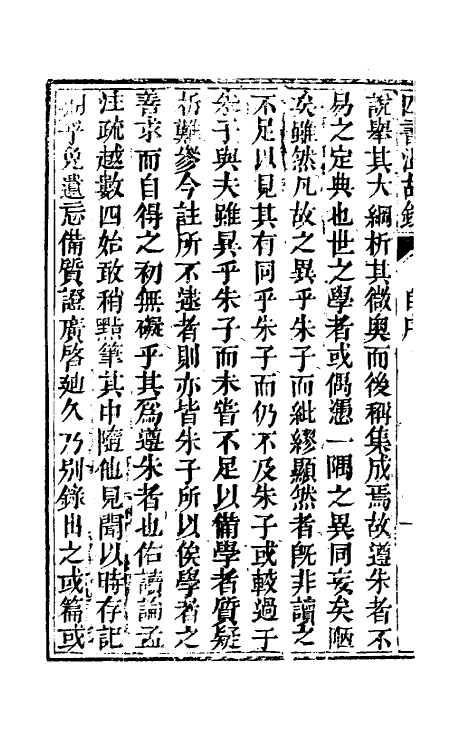 四書溫故錄 自序 一
說舉其大綱析其微奧而後稱集成焉故遵朱者不
易之定典也世之學者或偶憑一隅之異同妄矣陋
矣雖然凡故之異乎朱子而紕繆顯然者旣非讀之
不足以見其有同乎朱子而仍不及朱子或較過于
朱子與夫雖異乎朱子而未嘗不足以備學者質疑
析難參今註所不逮者則亦皆朱子所以俟學者之
善求而自得之初無礙乎其爲遵朱者也佑讀論孟
注疏越數四始敢稍點筆其中隨他見聞以時存記
乎免遺忘備質證廣啓廸久乃別錄出之或篇或